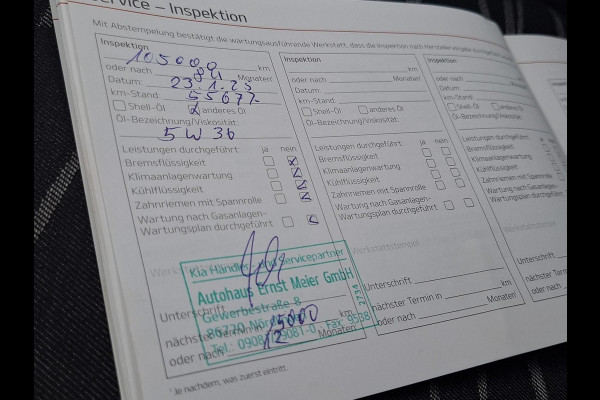 Service – Inspektion
Mit Abstempelung bestätigt die wartungsausführende Werkstatt, dass die Inspektion nach Hersteller
Inspektion
105000 km
oder nach 84 Monaten¹
Datum: 23.1.23
km-Stand: 55677-
Shell-Öl anderes Öl
Öl-Bezeichnung/Viskosität:
5W30
Leistungen durchgeführt: ja nein
Bremsflüssigkeit
Klimaanlagenwartung
Kühlflüssigkeit
Zahnriemen mit Spannrolle
Wartung nach Gasanlagen-
Wartungsplan durchgeführt
Kia Händler- und Servicepartner
Autohaus Ernst Meier GmbH
Gewerbestraße 8
86720
Tel.: 9081-0 Fax: 9538
2734
Unterschrift
nächster Termin in 15000 km
oder nach 12 Monaten
¹ Je nachdem, was zuerst eintritt.
Inspektion
km
oder nach Monaten¹
Datum:
km-Stand:
Shell-Öl anderes Öl
Öl-Bezeichnung/Viskosität:
Leistungen durchgeführt: ja nein
Bremsflüssigkeit
Klimaanlagenwartung
Kühlflüssigkeit
Zahnriemen mit Spannrolle
Wartung nach Gasanlagen-
Wartungsplan durchgeführt
Werkstattstempel
Unterschrift
nächster Termin in km
oder nach Monaten¹
Inspektion
oder nach
Datum:
km-Stand:
Shell-Öl anderes Öl
Öl-Bezeichnung/Viskosität:
Leistungen durchgeführt:
Bremsflüssigkeit
Klimaanlagenwartung
Kühlflüssigkeit
Zahnriemen mit Spannrolle
Wartung nach Gasanlagen-
Wartungsplan durchgeführt
Unterschrift
nächster Termin in
oder nach